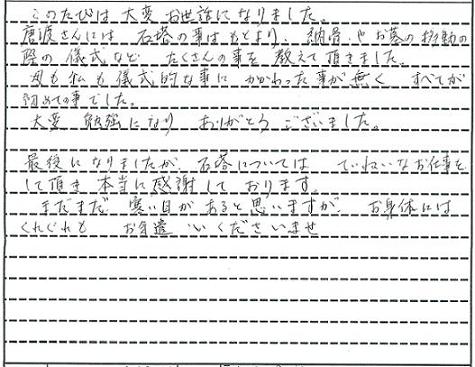 このたびは 大変 お世話になりました。
唐渡さんには 石塔の事はもとより、納骨、やお墓の移動の
際の儀式など、たくさんの事を 教えて頂きました。
母も私も儀式的な事に かかわった事が無く すべてが
初めての事でした。
大変 勉強になり ありがとう ございました。
最後になりましたが、石塔については ていねいなお仕事を
して頂き 本当に感謝して おります。
まだまだ 寒い日が あると思いますが、お身体には
くれぐれも お気遣いくださいませ